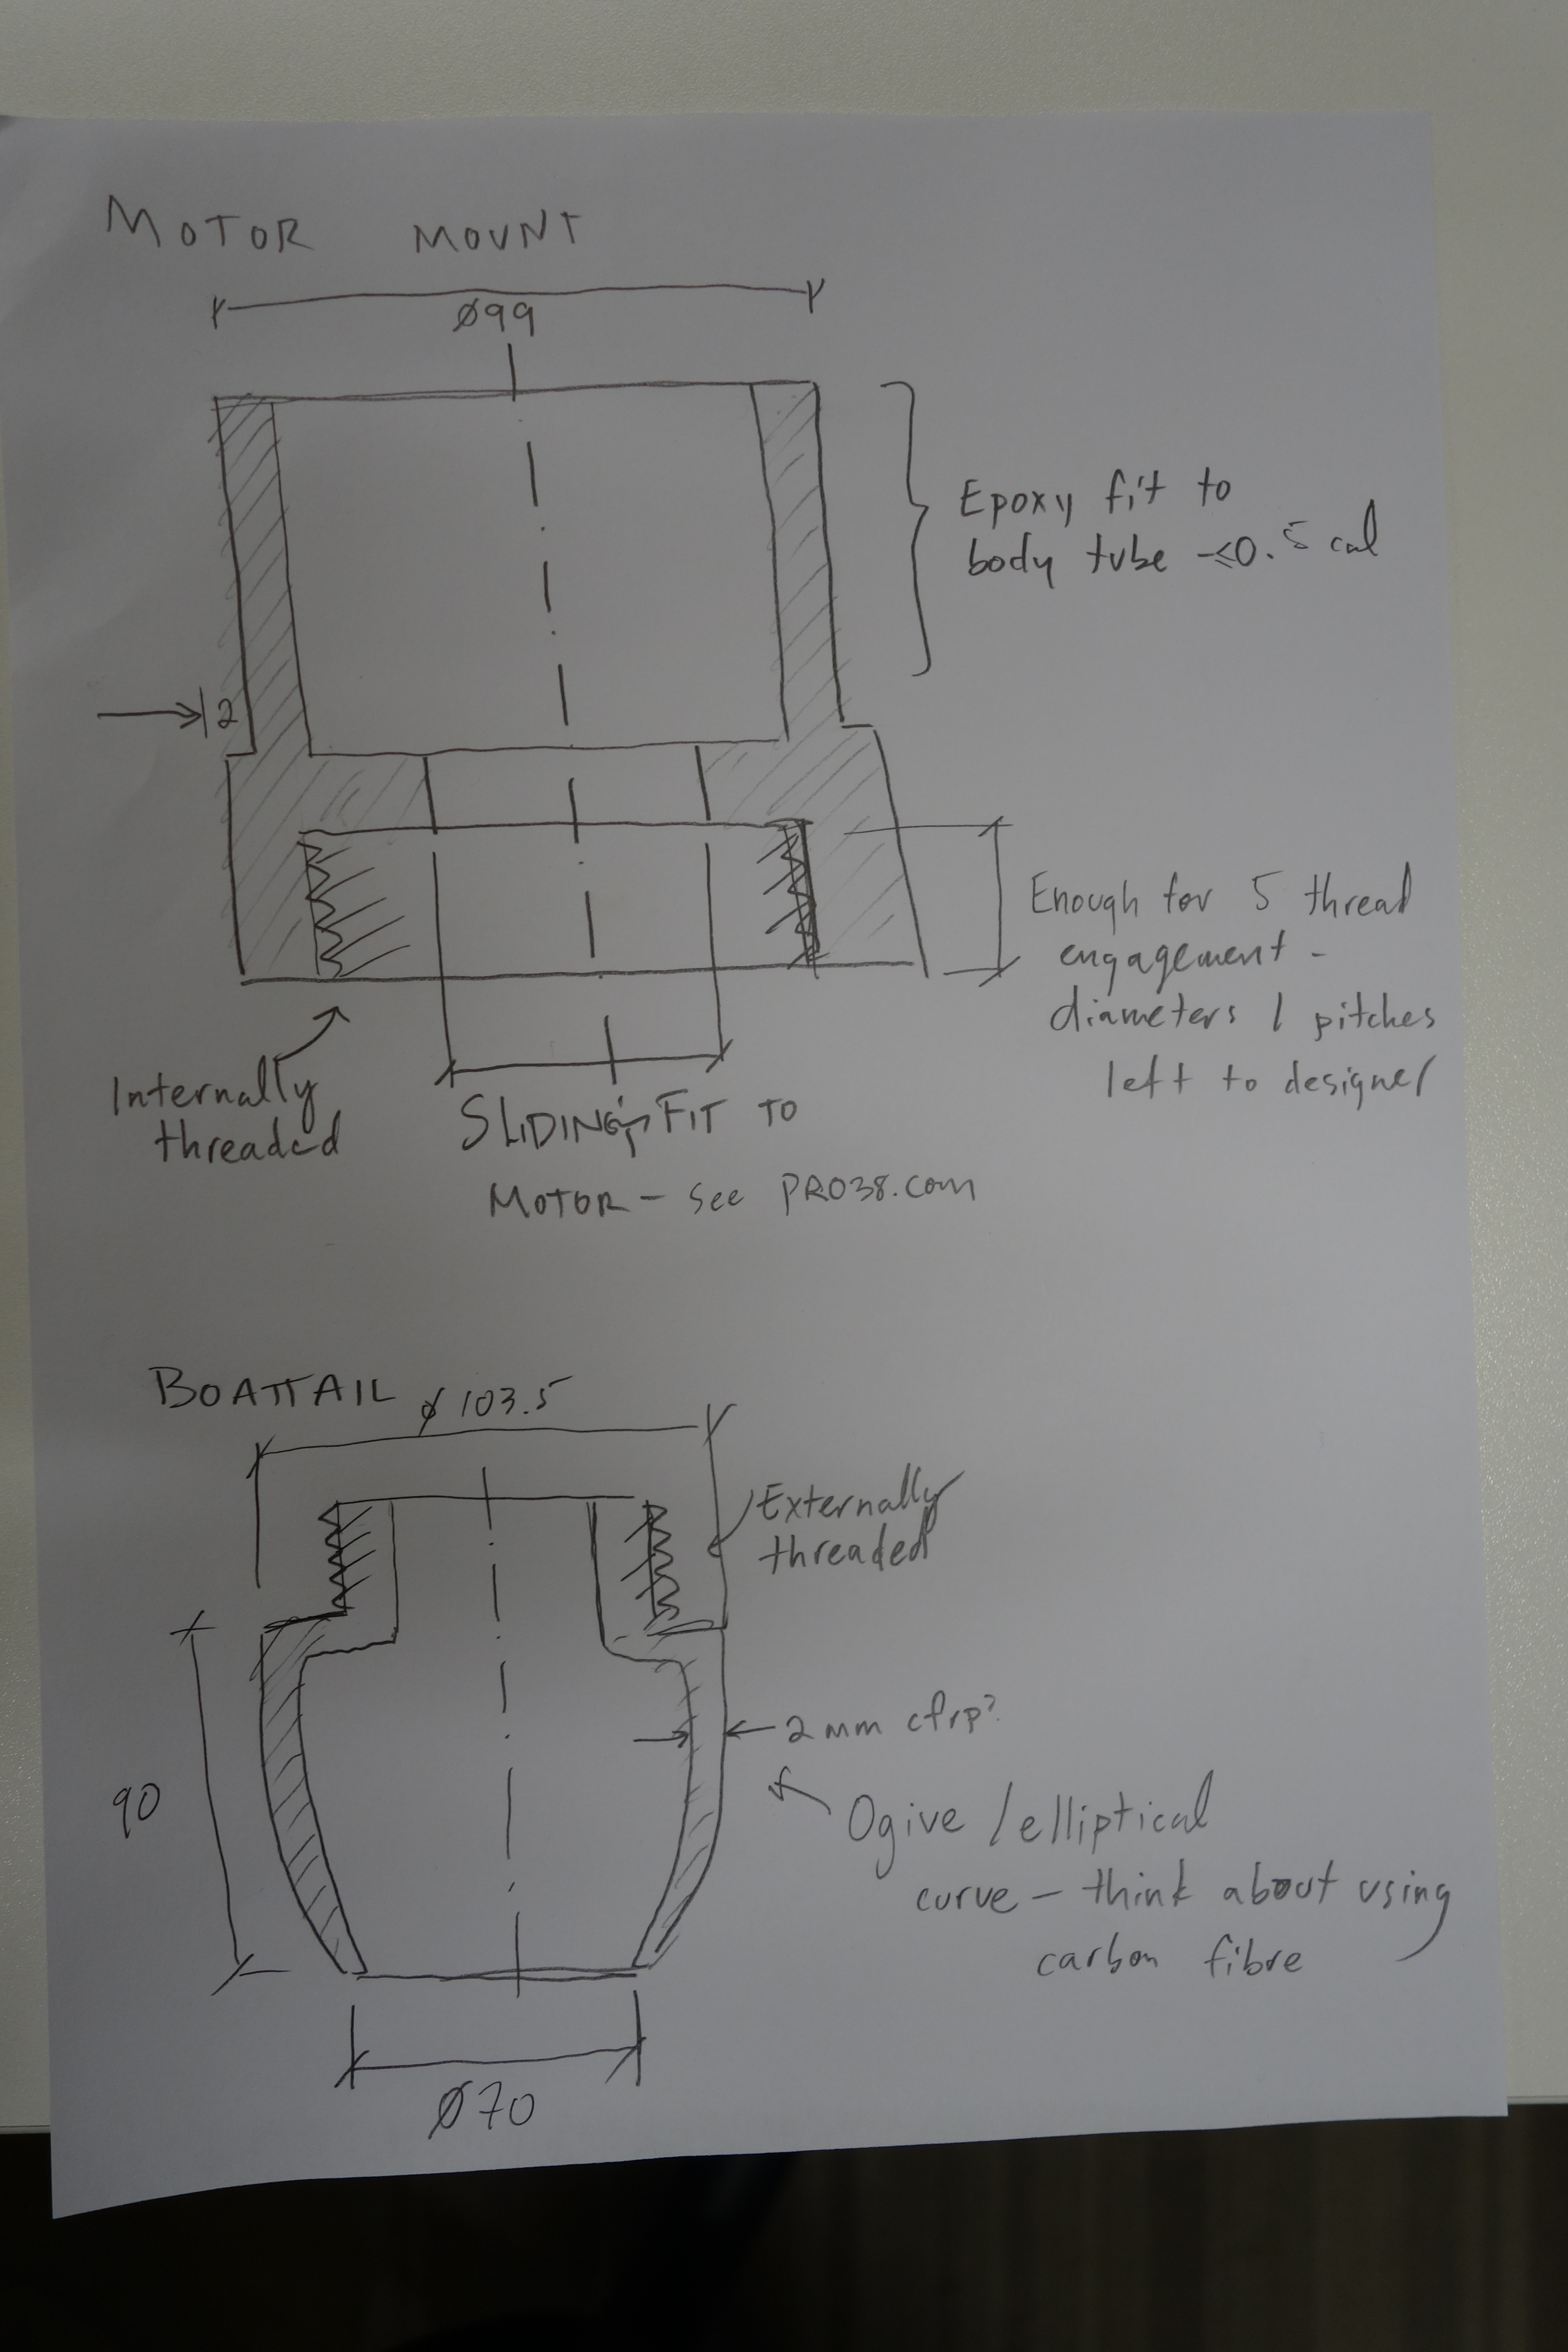 MOTOR MOUNT
Ø99
Epoxy fit to
body tube - ≤0.5 cal
2
Enough for 5 thread
engagement -
diameters / pitches
left to designer
Internally
threaded
SLIDING FIT TO
MOTOR - See PRO38.com
BOATTAIL
Ø103.5
Externally
threaded
2mm cfrp?
90
Ogive / elliptical
curve - think about using
carbon fibre
Ø70